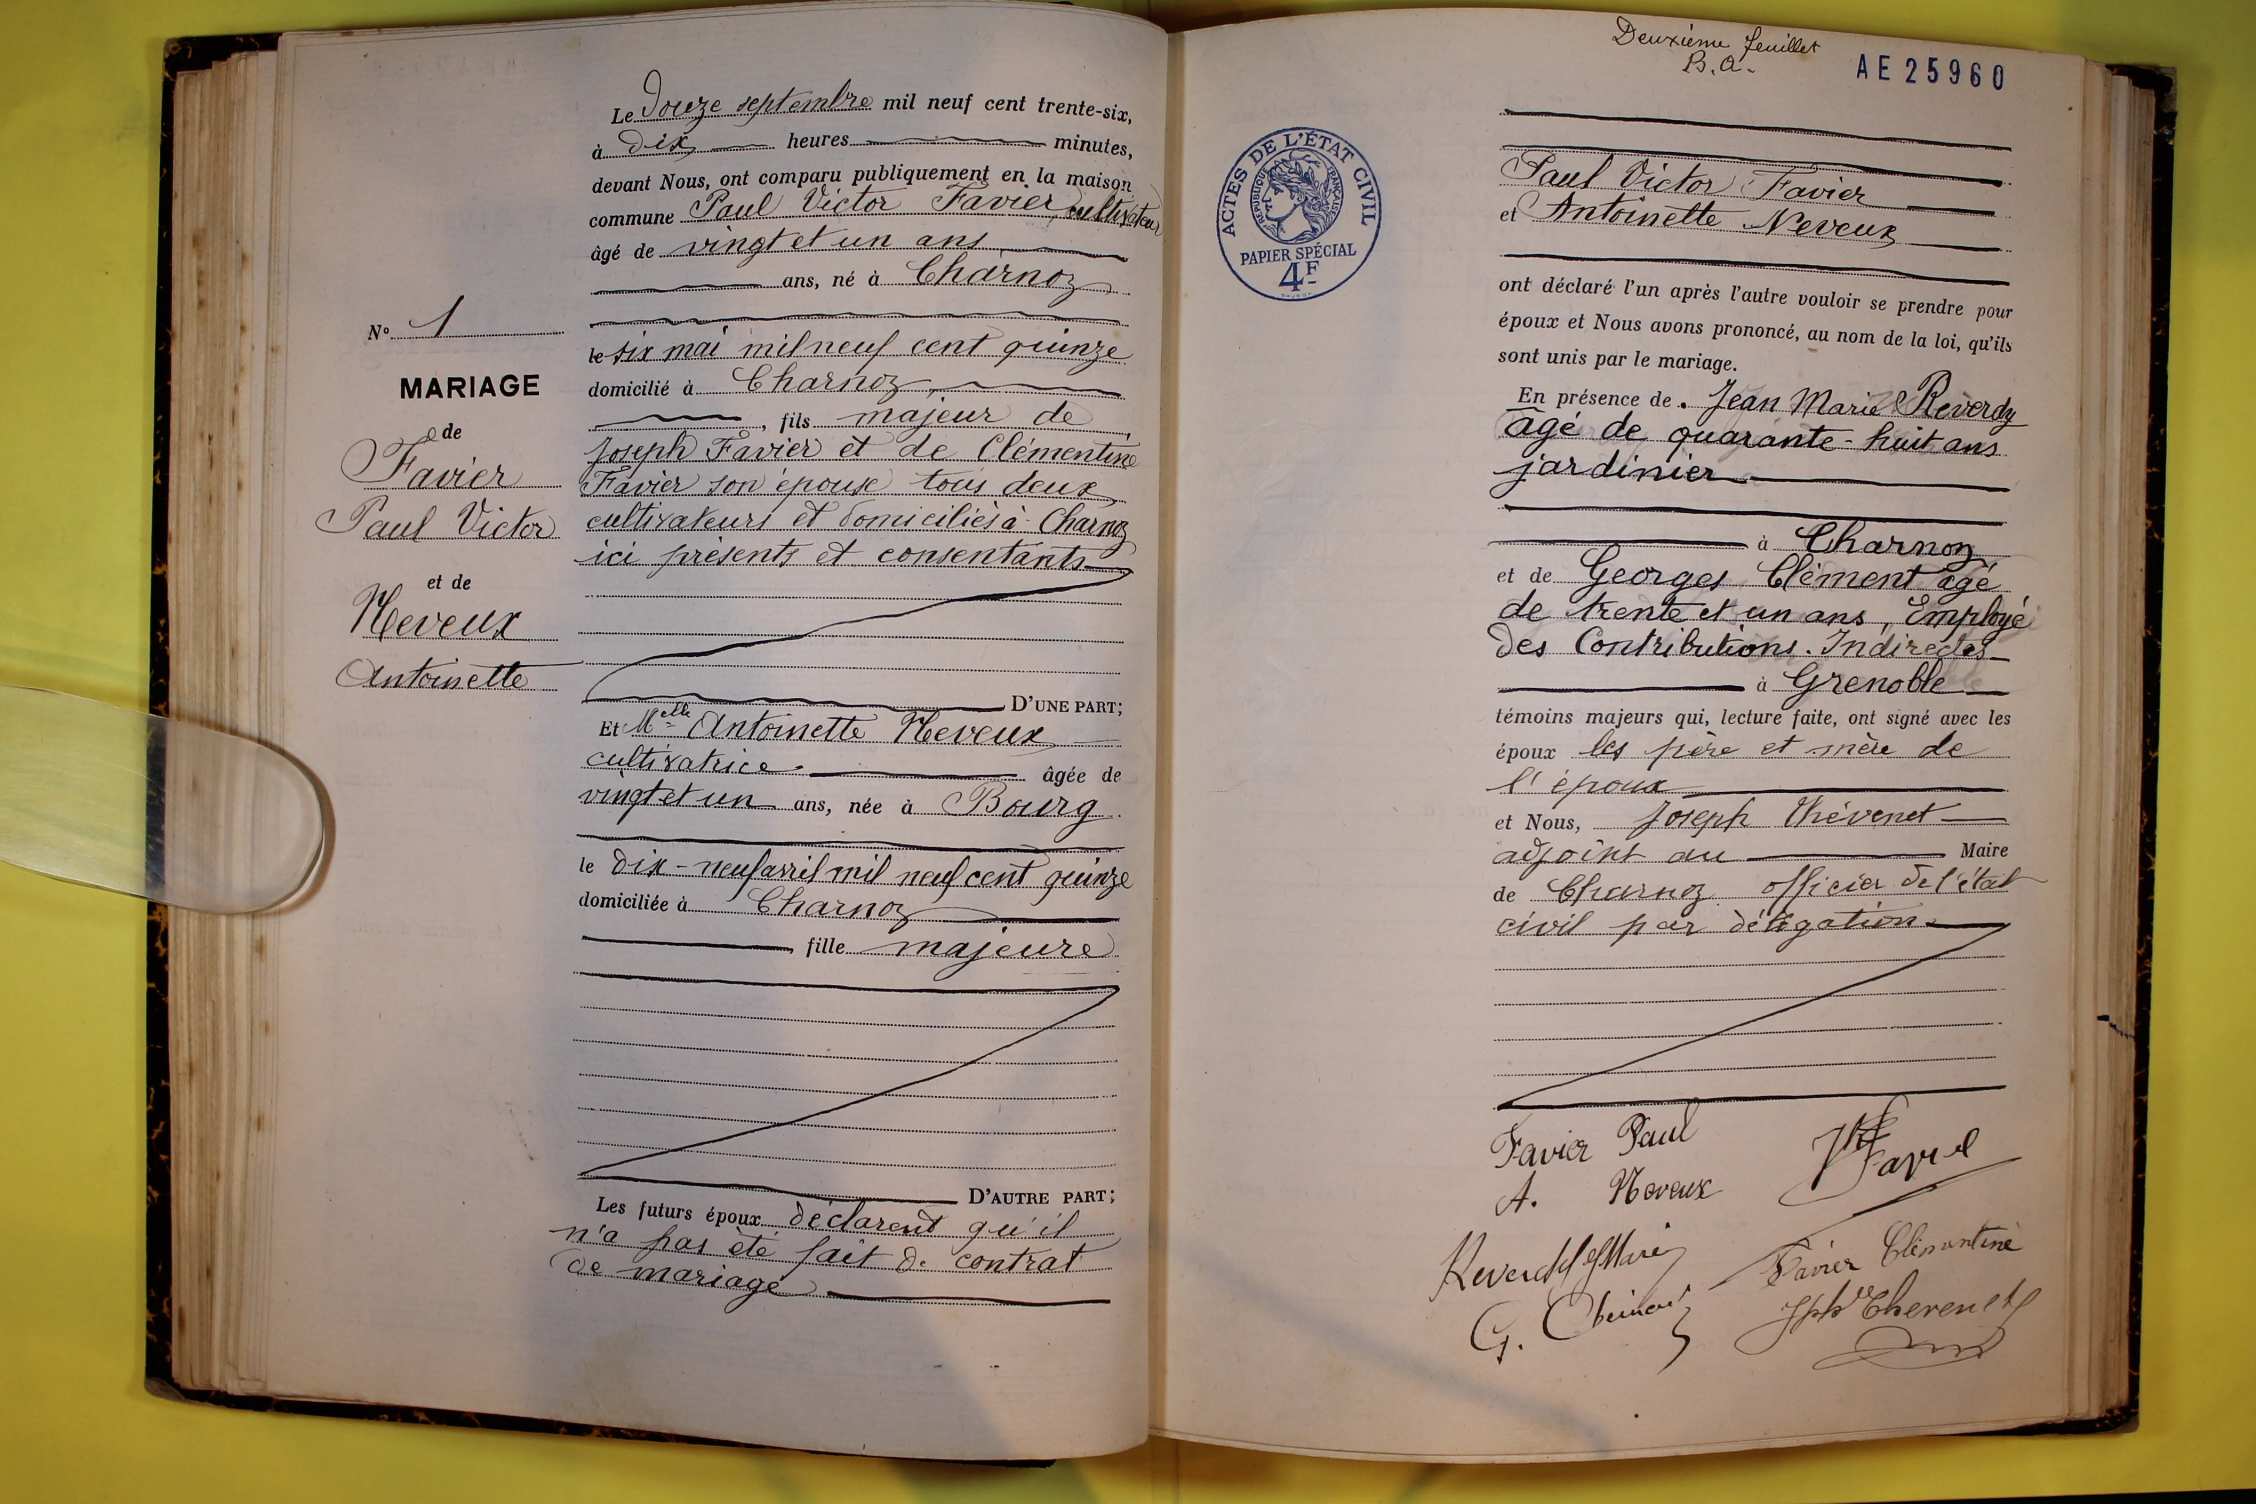 Le Douze septembre mil neuf cent trente-six,
à Dix heures minutes,
devant Nous, ont comparu publiquement en la maison
commune Paul Victor Favier, cultivateur
âgé de vingt et un ans
ans, né à Charnoz
le six mai mil neuf cent quinze
domicilié à Charnoz,
, fils majeur de
Joseph Favier et de Clémentine
Favier son épouse tous deux
cultivateurs et domiciliés à Charnoz
ici présents et consentants
D'UNE PART;
Et Melle Antoinette Neveux
cultivatrice âgée de
vingt et un ans, née à Bourg
le dix-neuf avril mil neuf cent quinze
domiciliée à Charnoz
, fille majeure
D'AUTRE PART;
Les futurs époux déclarent qu'il
n'a pas été fait de contrat
de mariage
N° 1
MARIAGE
de
Favier
Paul Victor
et de
Neveux
Antoinette
Deuxième feuillet
B.A.
AE25960
ACTES DE L'ÉTAT CIVIL
RÉPUBLIQUE FRANÇAISE
PAPIER SPÉCIAL
4F
Paul Victor Favier
et Antoinette Neveux
ont déclaré l'un après l'autre vouloir se prendre pour
époux et Nous avons prononcé, au nom de la loi, qu'ils
sont unis par le mariage.
En présence de Jean Marie Reverdy
âgé de quarante-huit ans
jardinier
à Charnoz
et de Georges Clément âgé
de trente et un ans, Employé
des Contributions Indirectes
à Grenoble
témoins majeurs qui, lecture faite, ont signé avec les
époux les père et mère de
l'époux
et Nous, Joseph Thévenet
adjoint au Maire
de Charnoz officier de l'état
civil par délégation
Favier Paul
Jh Favier
A. Neveux
Favier Clémentine
G. Clément
Jph Thevenet